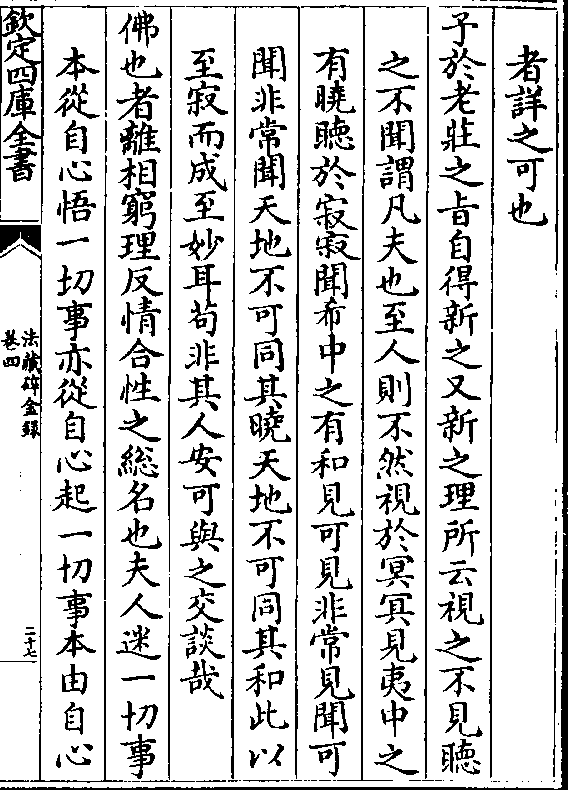 者詳之可也
予於老莊之旨自得新之又新之理所云視之不見聽
之不聞謂凡夫也至人則不然視於冥冥見夷中之
有曉聽於寂寂聞希中之有和見可見非常見聞可
聞非常聞天地不可同其曉天地不可同其和此以
至寂而成至妙耳苟非其人安可與之交談哉
佛也者離相窮理反情合性之総名也夫人迷一切事
本從自心悟一切事亦從自心起一切事本由自心
欽定四庫全書
法藏碎金錄
卷四
二十七